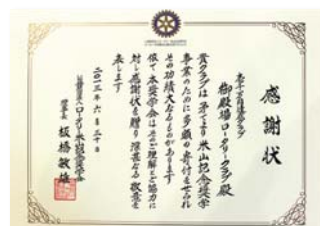 感謝状
御殿場ロータリークラブ殿
貴クラブは予てより米山記念奨学
事業のために多額の寄付をせられ
その功績大なるものがあります
依て本奨学会はそのご理解とご協力に
対し感謝状を贈り深甚なる敬意を
表します
二〇一三年六月三十日
理事長 板橋敏雄